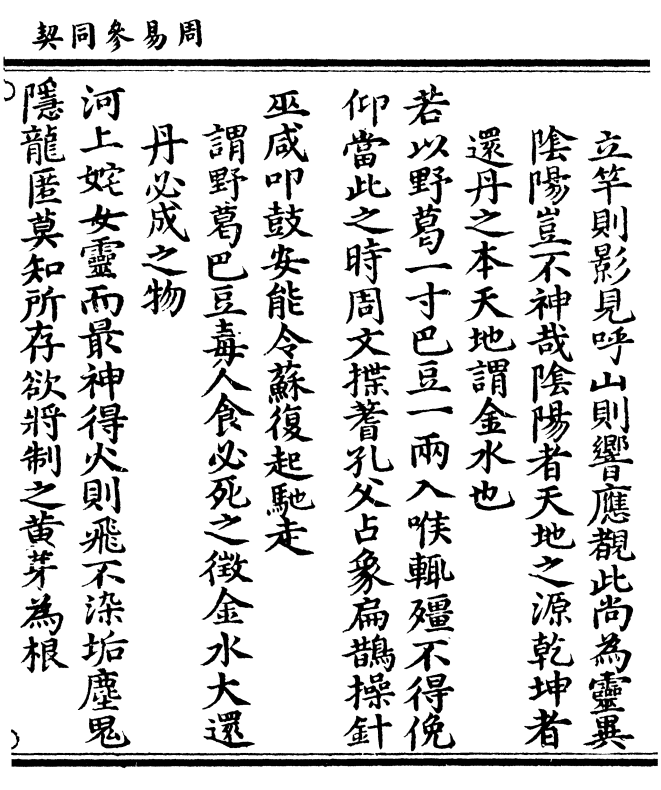 周易參同契
立竿則影見呼山則響應覩此尚為靈異
陰陽豈不神哉陰陽者天地之源乾坤者
還丹之本天地謂金水也
若以野葛一寸巴豆一兩入喉輒殭不得俛
仰當此之時周文揲蓍孔父占象扁鵲操針
巫咸叩鼓安能令蘇復起馳走
謂野葛巴豆毒人食必死之徵金水大還
丹必成之物
河上姹女靈而最神得火則飛不染垢塵鬼
隱龍匿莫知所存欲將制之黄芽為根